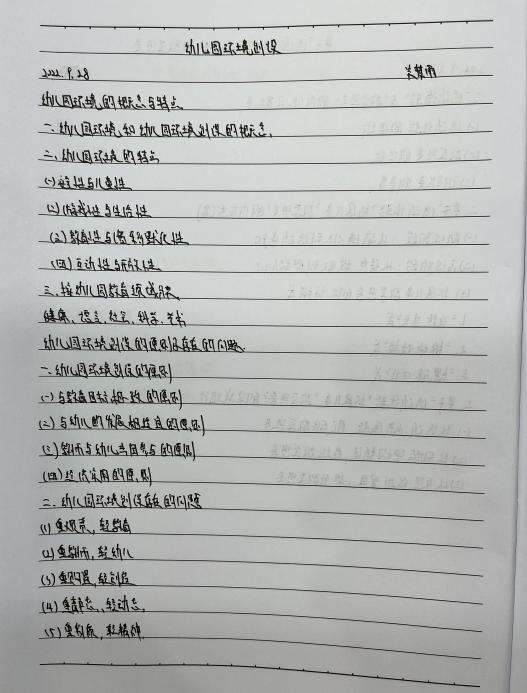 幼儿园环境创设
2022.9.28
幼儿园环境的概念与特点
一、幼儿园环境和幼儿园环境创设的概念.
二、幼儿园环境的特点
(一)童性与儿童性
(二)游戏性与生活性
(三)教育性与潜移默化性
(四)互动性与开放性
三、按幼儿园教育领域分类
健康、语言、社会、科学、艺术
幼儿园环境创设的原则及存在的问题.
一、幼儿园环境创设的原则
(一)与教育目标相一致的原则
(二)与幼儿的发展相适宜的原则
(三)教师与幼儿共同参与的原则
(四)经济实用的原则
二、幼儿园环境创设存在的问题
(1)重观赏,轻教育
(2)重教师,轻幼儿
(3)重购置,轻创造
(4)重静态,轻动态.
(5)重物质,轻精神.